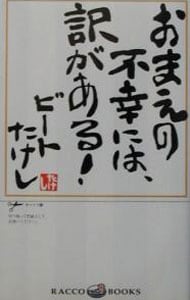 おまえの
不幸には、
訳がある!
ビート
たけし
RACCO BOOKS